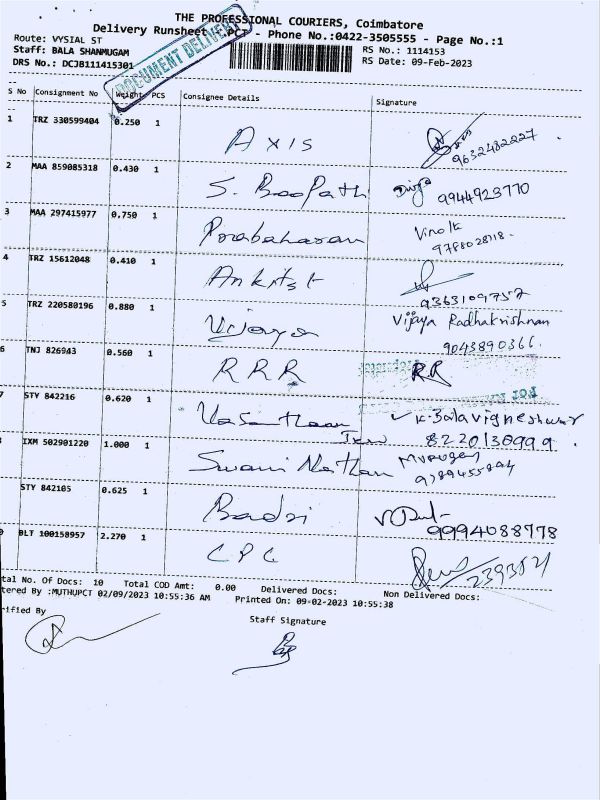 THE PROFESSIONAL COURIERS, Coimbatore
Delivery Runsheet - PCT - Phone No.:0422-3505555 - Page No.:1
Route: VYSIAL ST
RS No.: 1114153
Staff: BALA SHANMUGAM
RS Date: 09-Feb-2023
DRS No.: DCJB111415301
DOCUMENT DELIVERY
S No Consignment No Weight PCS Consignee Details Signature
1 TRZ 330599404 0.250 1 Axis 9632482227
2 MAA 859085318 0.430 1 S. BooPathi Divya 9944923770
3 MAA 297415977 0.750 1 Prabaharan
4 TRZ 15612048 0.410 1 9363109757
5 TRZ 220580196 0.880 1 Vijaya Vijaya Radhakrishnan
9043890366.
6 TNJ 826943 0.560 1 RRR RR
7 STY 842216 0.620 1 K. Balavigneshwar
8220130999.
IXM 502901220 1.000 1 Swami Nathan Murugan
STY 842105 0.625 1 Badri 99994088778
BLT 100158957 2.270 1 CPC
tal No. Of Docs: 10 Total COD Amt: 0.00 Delivered Docs: Non Delivered Docs:
tered By :MUTHUPCT 02/09/2023 10:55:36 AM Printed On: 09-02-2023 10:55:38
rified By
Staff Signature